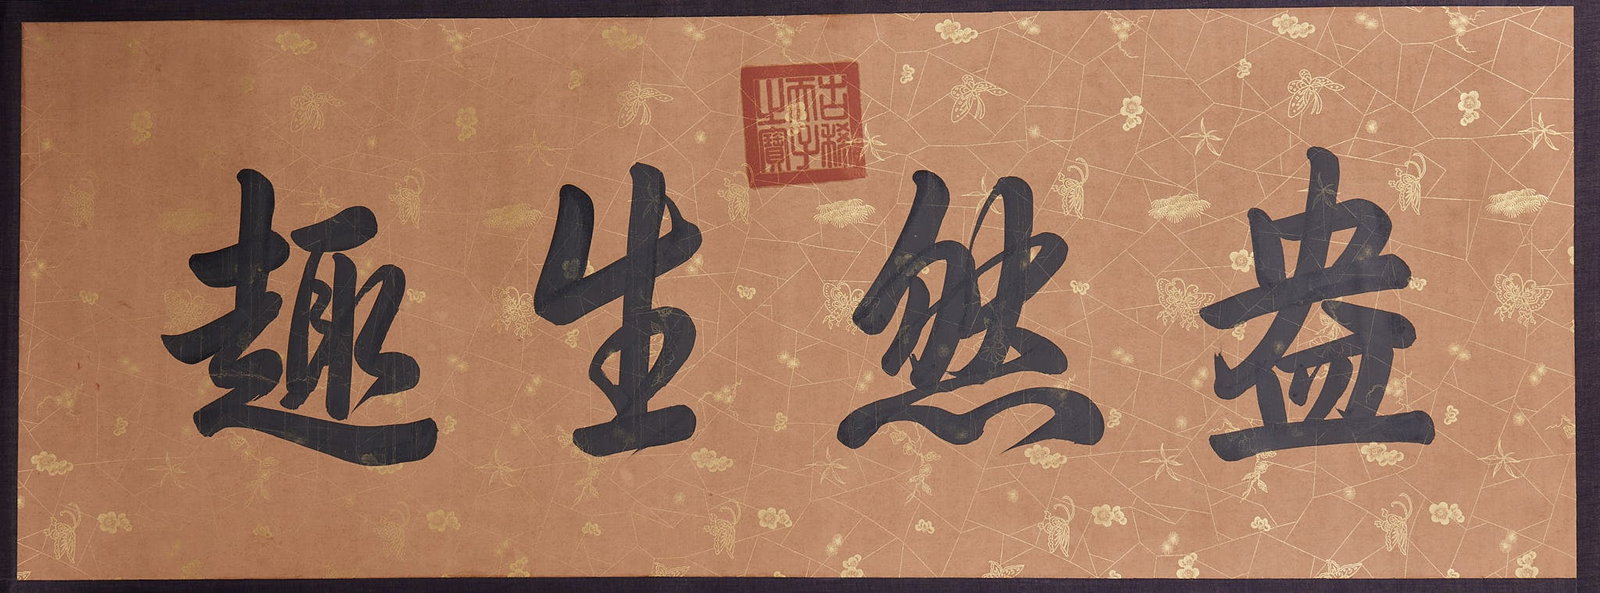 盎然生趣
古稀天子之寶